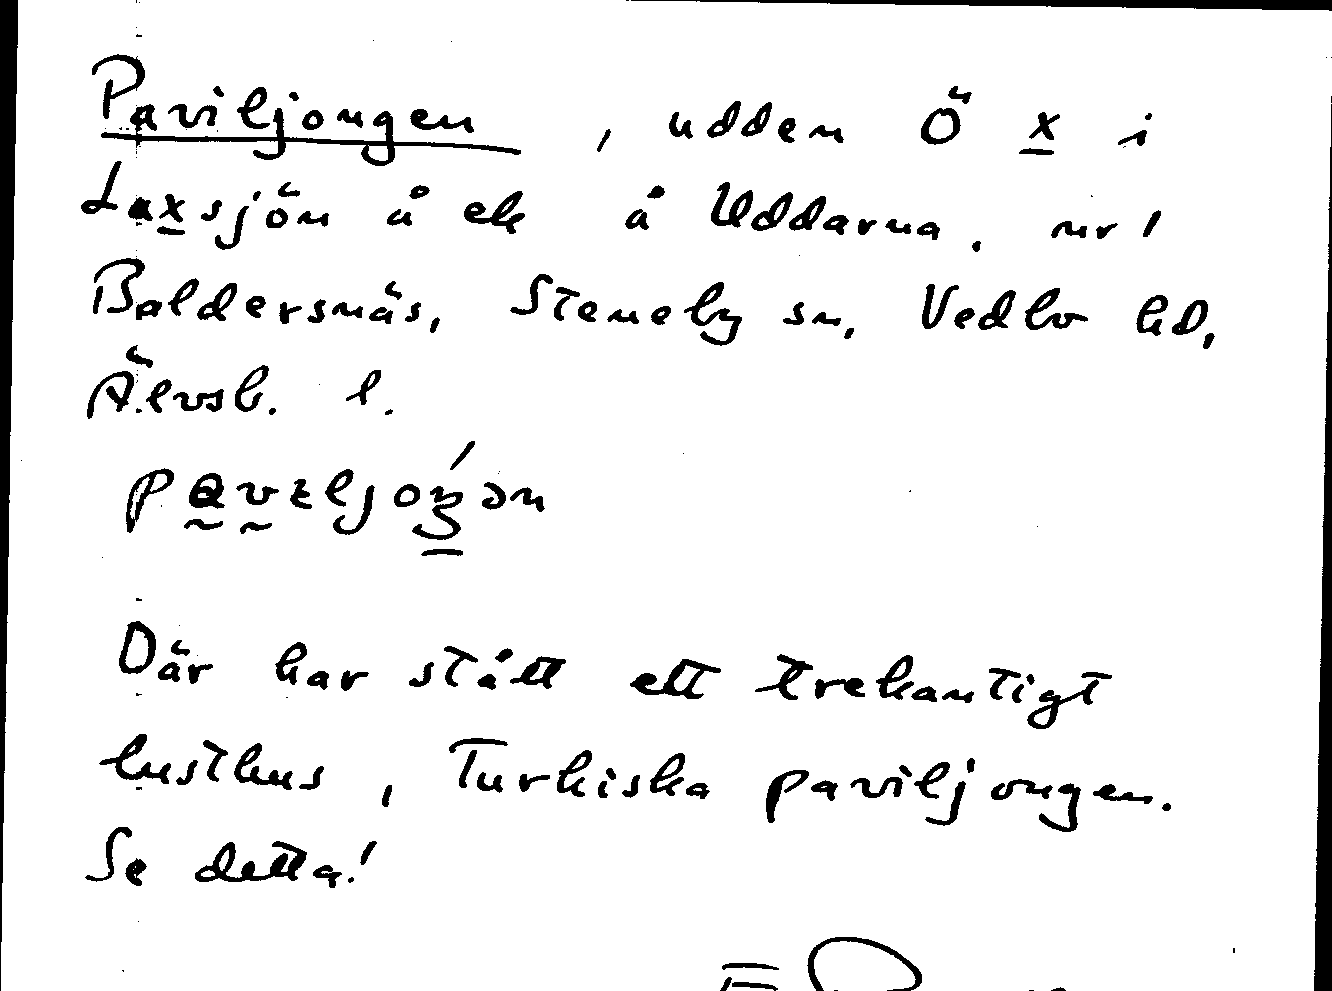 Paviljongen, udden Ö x i
Laxsjön å ek å Uddarna. nr 1
Baldersnäs, Steneby sn, Vedbo hd,
Älvsb. l.
Där har stått ett trekantigt
lusthus, Turkiska paviljongen.
Se detta!